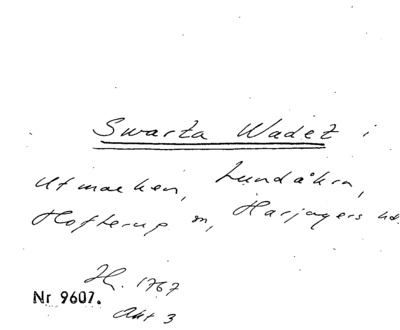 Swarta Wadet i
Utmarken, Lundåkra,
Hofterup sn, Harjagers hd.
Jh. 1767
Nr 9607.
Akt 3